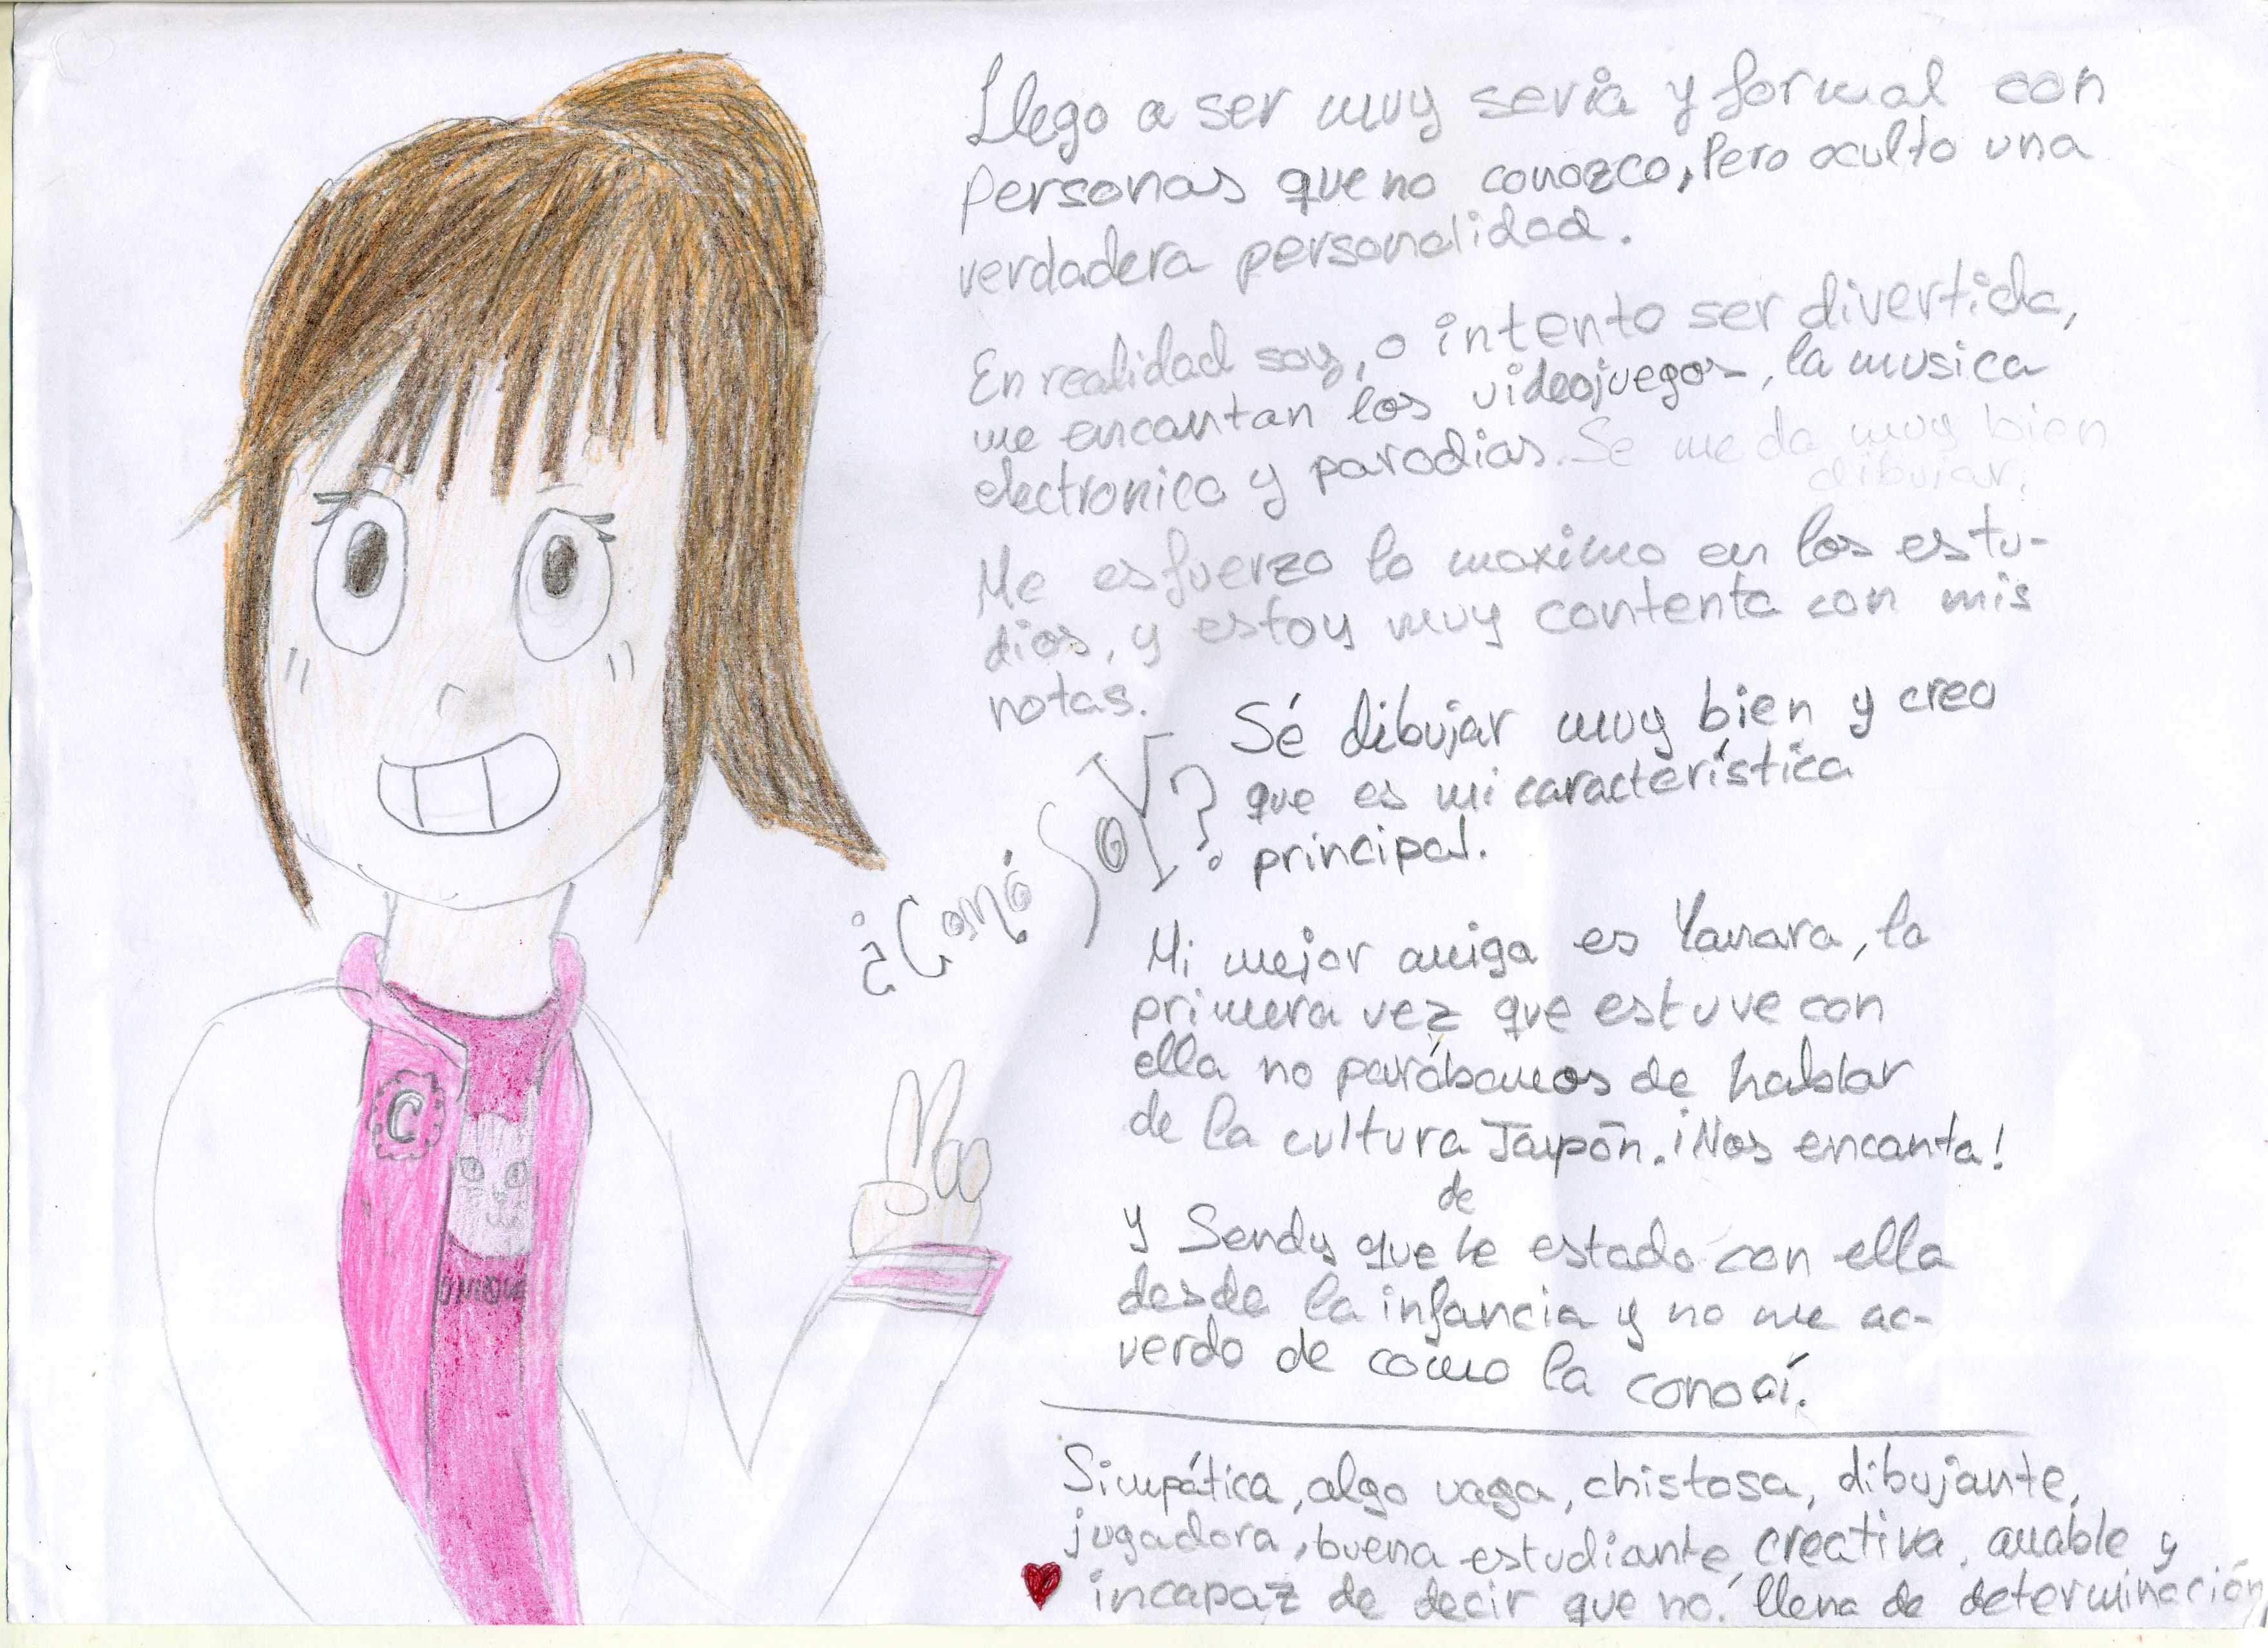 Llego a ser muy seria y formal con
personas que no conozco, Pero oculto una
verdadera personalidad.
En realidad soy, o intento ser divertida,
me encantan los videojuegos, la musica
electronica y parodias. Se me da muy bien
dibujar.
Me esfuerzo lo maximo en los estu-
dios, y estoy muy contenta con mis
notas.
¿Como SOY?
Sé dibujar muy bien y creo
que es mi característica
principal.
Mi mejor amiga es Yanara, la
primera vez que estuve con
ella no parábamos de hablar
de la cultura Japón. ¡Nos encanta!
de
y Sendy que he estado con ella
desde la infancia y no me ac-
uerdo de como la conocí.
C
Simpática, algo vaga, chistosa, dibujante,
jugadora, buena estudiante, creativa, amable y
incapaz de decir que no. llena de determinación